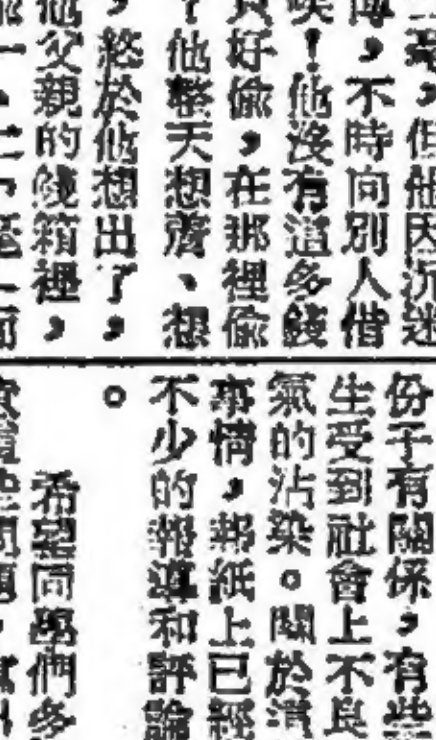 一毫，但他因沉迷
，不時向別人借
！他沒有這多錢
好偷，在那裡偷
？他整天想着、想
，終於他想出了，
他父親的錢箱裡，
份子有關係，有些
生受到社會上不良
氣的沾染。關於這
事情，報紙上已經
不少的報導和評論
。
希望同學們多